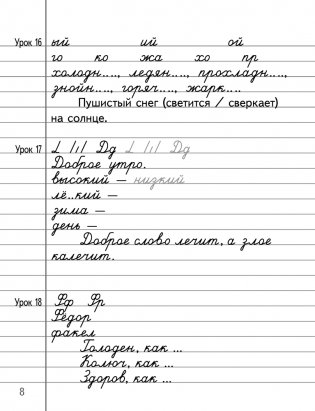 Урок 16 ый ий ой
го ко жа хо пр
холодн..., ледян..., прохладн...,
знойн..., горяч..., жарк....
Пушистый снег (светится / сверкает)
на солнце.
Урок 17 Дд Дд
Доброе утро.
высокий — низкий
лё..кий —
зима —
день —
Доброе слово лечит, а злое
калечит.
Урок 18 Фф Фр
Фёдор
факел
Голоден, как ...
Колюч, как ...
Здоров, как ...
8